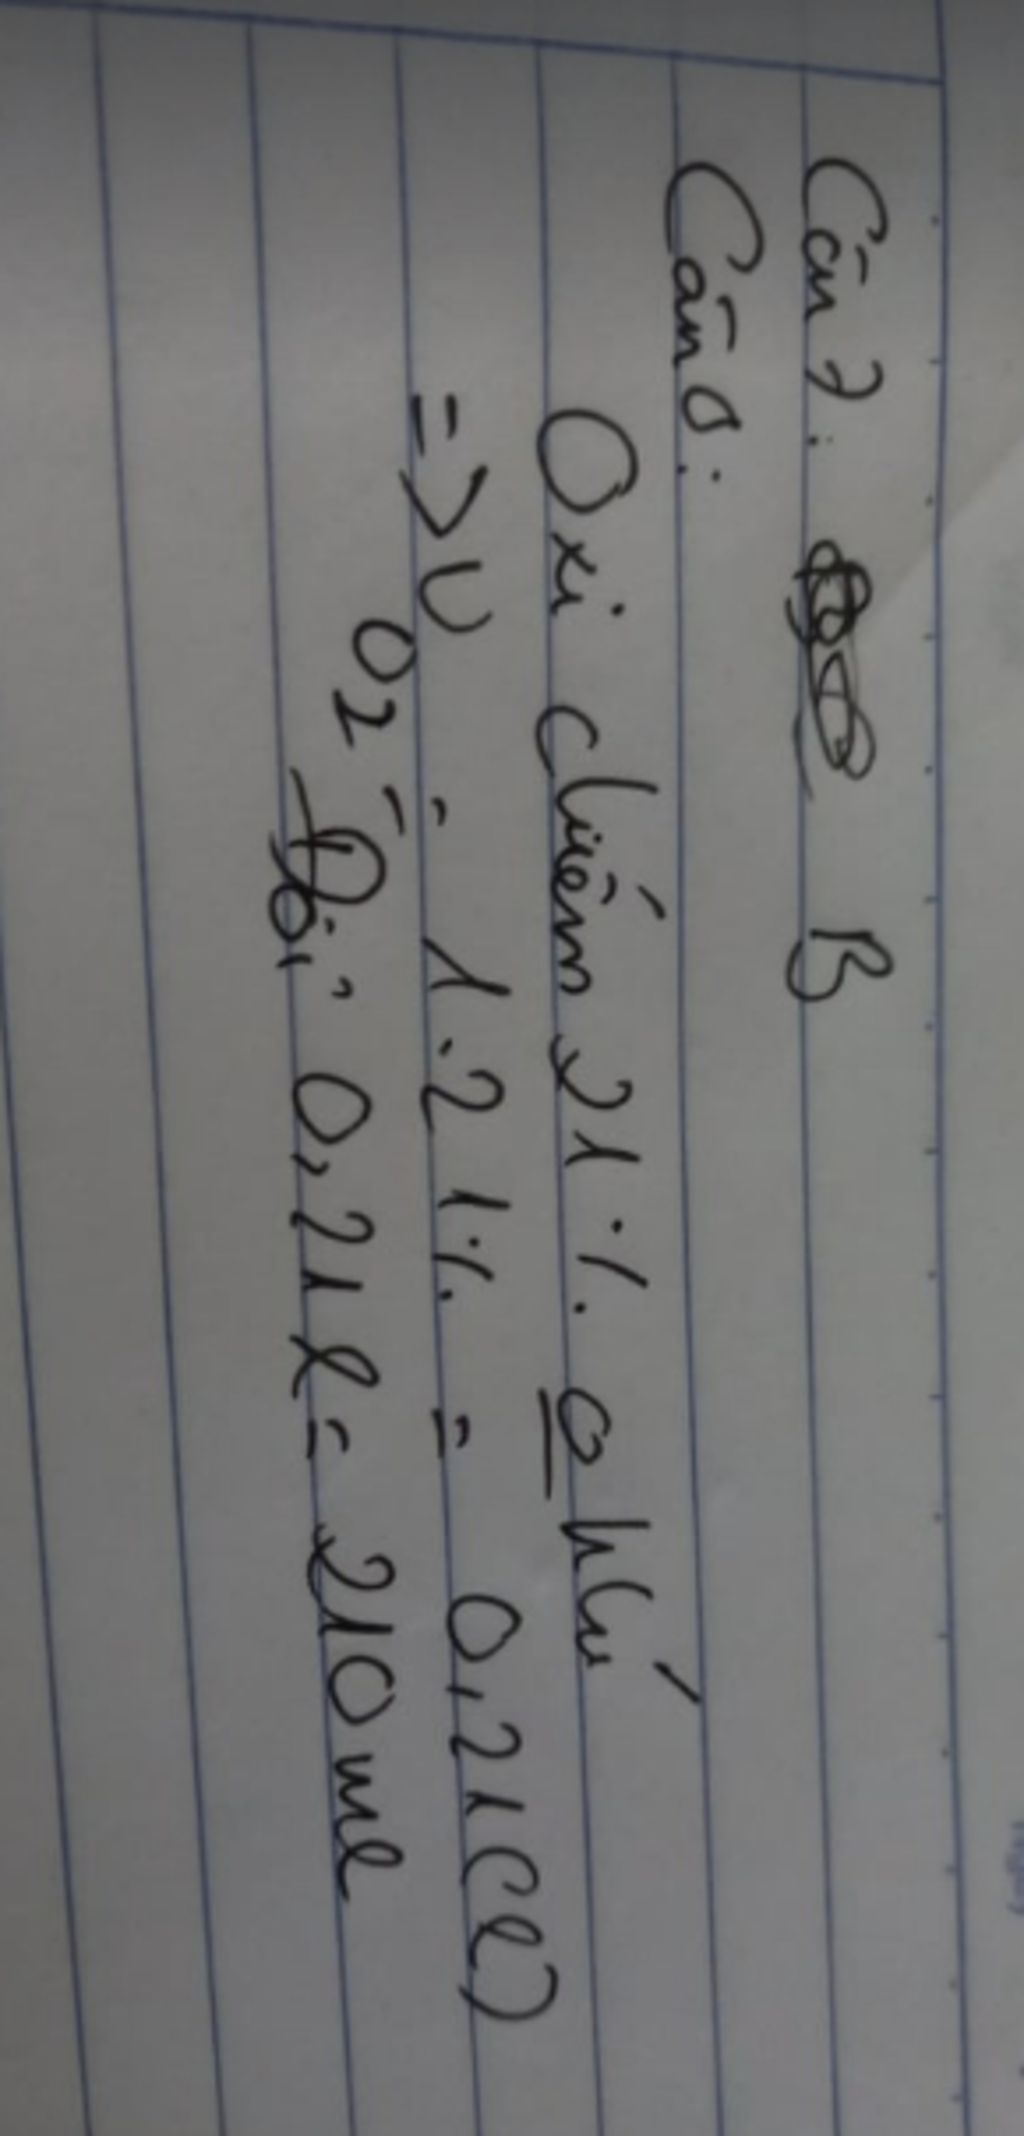 Câu 7: B
Câu 8:
Oxi chiếm 21% o khí
=> V
O2 = 1.21% = 0,21(l)
Đổi 0,21l = 210ml